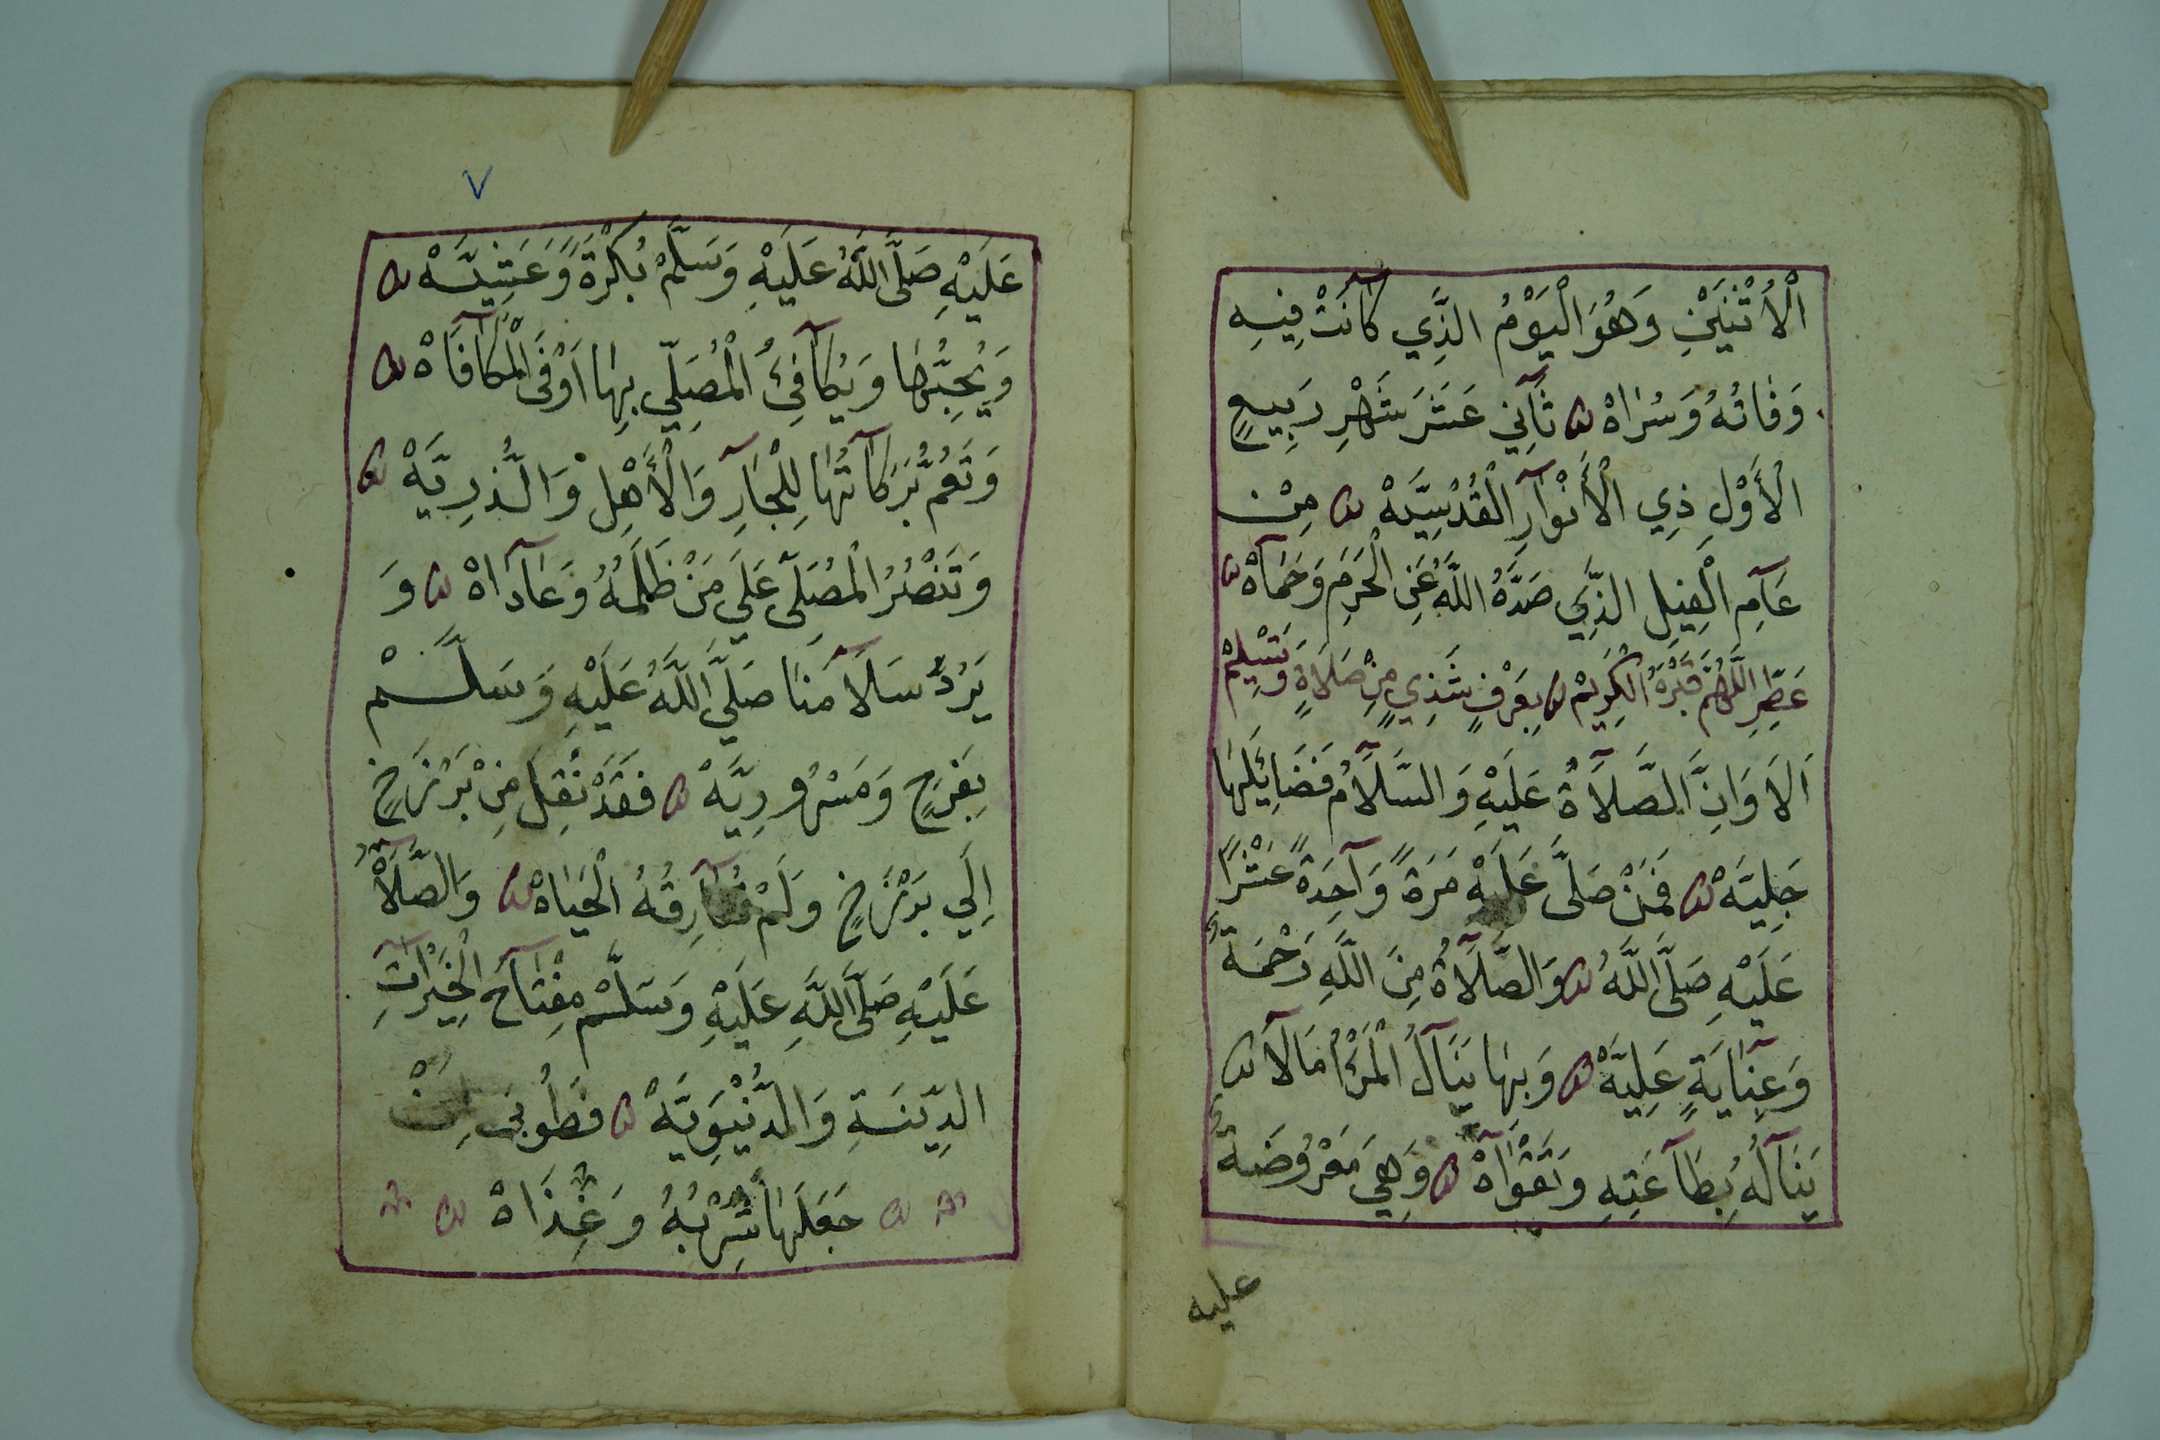 الْاُثْنَيْنِ وَهُوَ الْيَوْمُ الَّذِي كَانَتْ فِيهِ
وَفَاتُهُ وَسُرَاهْ ثَآنِي عَشَرَ شَهْرِ رَبِيعٍ
الْأَوَّلِ ذِي الْأَنْوَآرِ الْقُدْسِيَّهْ مِنْ
عَآمِ الْفِيلِ الَّذِي صَدَّهُ اللَّهُ عَنِ الْحَرَمِ وَحَمَآهْ
عَطِّرِ اللَّهُمَّ قَبْرَهُ الْكَرِيمْ بِعَرْفٍ شَذِيٍ مِنْ صَلَاةٍ وَتَسْلِيمْ
اَلَا وَاِنَّ الصَّلَآةُ عَلَيْهِ وَالسَّلَآمُ فَضَائِلَهَا
جَلِيَّهْ فَمَنْ صَلَّى عَلَيْهِ مَرَةً وَآحِدَةً عَشْرًا
عَلَيْهِ صَلَّى اللَّهُ وَالصَّلَآةُ مِنَ اللَّهِ رَحْمَةٌ
وَعِنَايَةٍ عَلِيَّهْ وَبِهَا يَنَآلُ الْمَرْءُ مَالَآ
يَنَآلُهُ بِطَآعَتِهِ وَتَقْوَآهْ وَهِيَ مَعْرُوضَةٌ
عليه
٧
عَلَيْهِ صَلَّى اللَّهُ عَلَيْهِ وَسَلَّمْ بُكْرَةً وَعَشِيَّهْ
وَيُحِبُّهَا وَيُكَآفِئُ الْمُصَلِّي بِهَا اَوْفَى الْمُكَآفَاهْ
وَتَعُمُّ بَرَكَآتُهَا لِلْجَآرِ وَالْأَهْلِ وَالذُّرِيَّهْ
وَتَنْصُرُ الْمُصَلِّى عَلَي مَنْ ظَلَمَهُ وَعَآدَاهْ وَ
يَرُدُّ سَلَآمَنَا صَلَّي اللَّهُ عَلَيْهِ وَسَلَّمْ
بِفَرَحٍ وَمَسْرُورِيَّهْ فَقَدْ نُقِلَ مِنْ بَرْزَخٍ
اِلَي بَرْزَخٍ وَلَمْ تُفَآرِقْهُ الْحَيَاهْ وَالصَّلَآةُ
عَلَيْهِ صَلَّى اللَّهِ عَلَيْهِ وَسَلَّمْ مِفْتَآحُ الْخَيْرَآتِ
الدِّينَيةِ وَالدُّنْيَوِيَّهْ فَطُوبَى لِمَنْ
جَعَلَهَا شُرْبُهُ وَغِذَاهْ